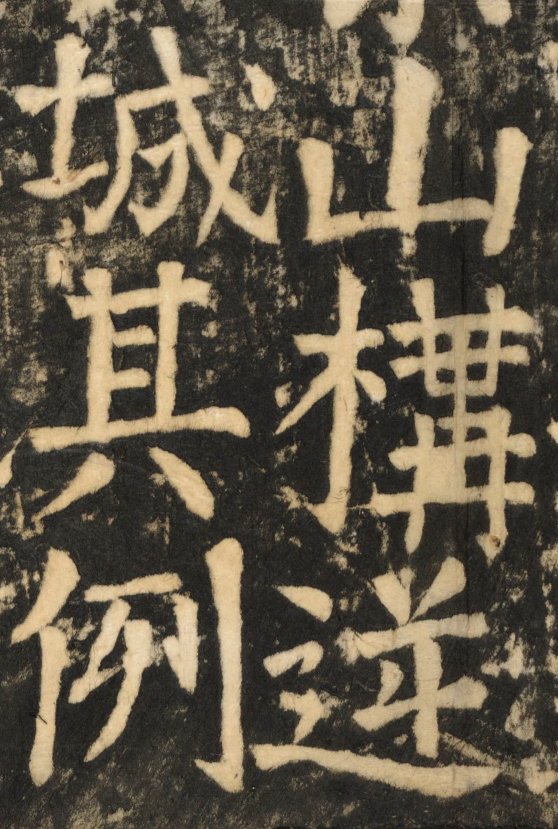 山構逆
城其例